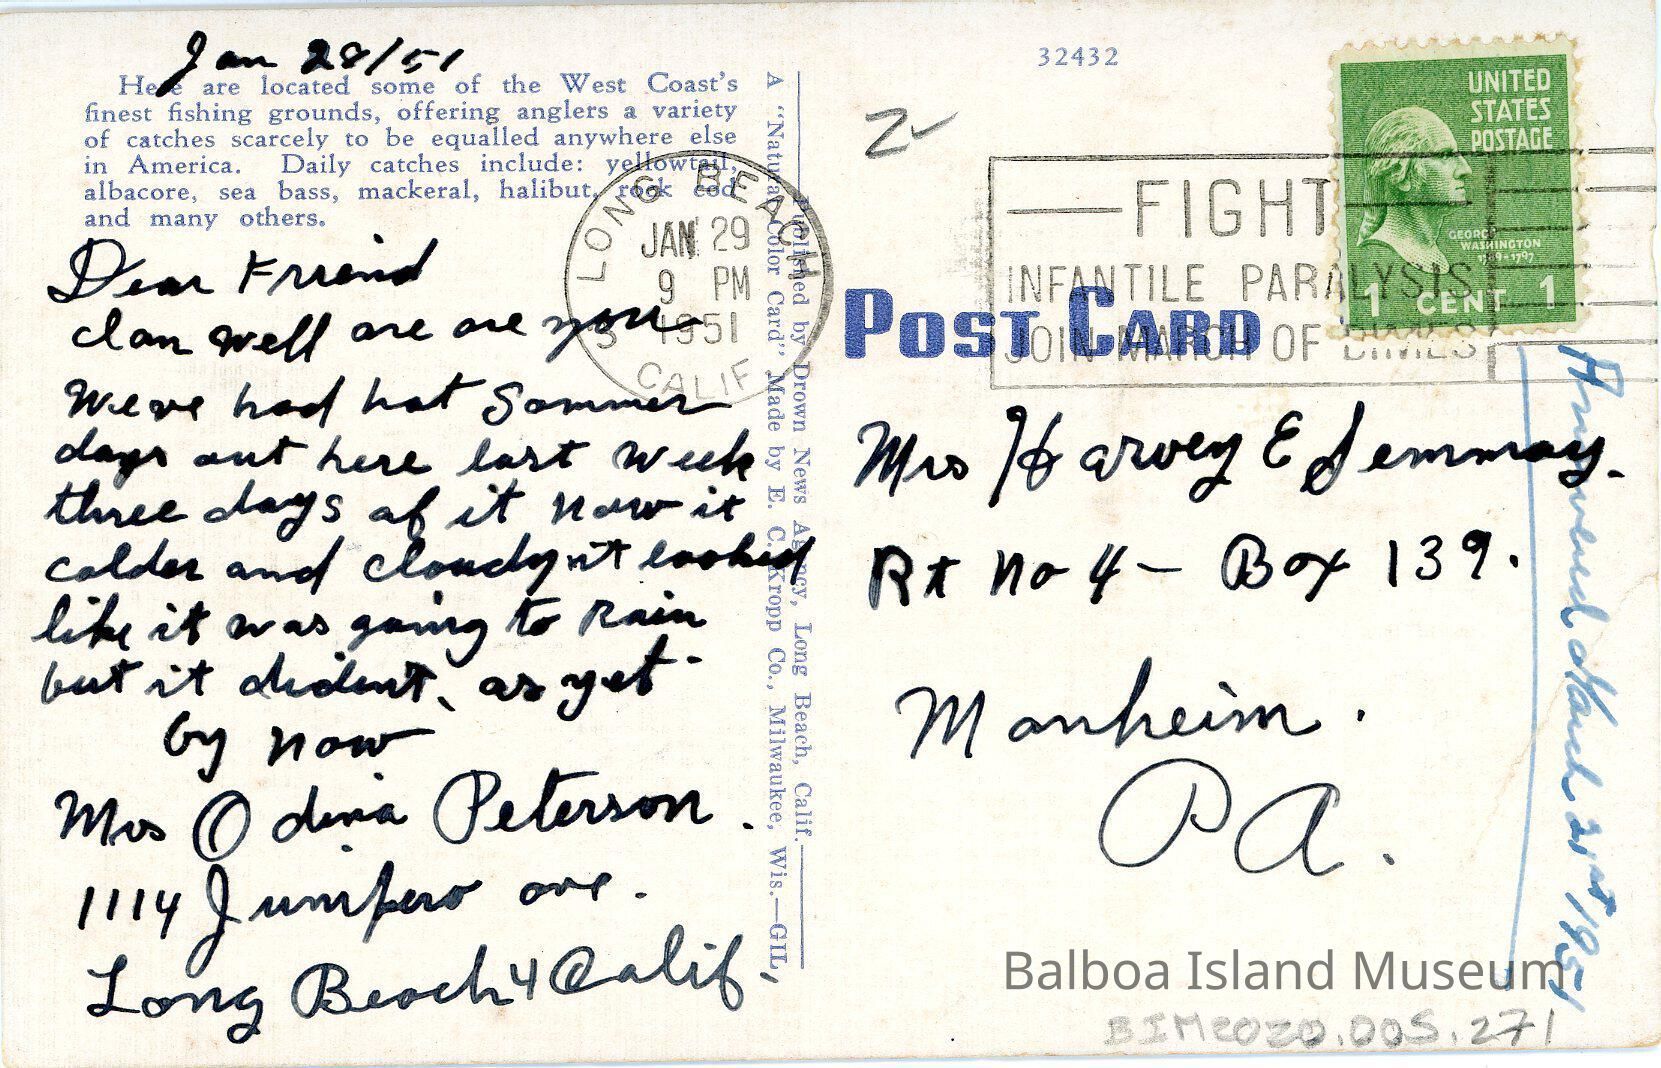 Jan 28/51
Here are located some of the West Coast's
finest fishing grounds, offering anglers a variety
of catches scarcely to be equalled anywhere else
in America. Daily catches include: yellowtail,
albacore, sea bass, mackeral, halibut, rock cod
and many others.
Dear Friend
I am well are are you
Weve had hot Sommer
days out here last week
three days of it now it
colder and cloudy it looked
like it was going to Rain
but it dident, as yet.
by now
Mrs Odina Peterson.
1114 Junipero ave.
Long Beach 4 Calif.
A "Natural Color Card" Made by E. C. Kropp Co., Milwaukee, Wis.—GIL
Published by Drown News Agency, Long Beach, Calif.
LONG BEACH
JAN 29
9 PM
1951
CALIF
32432
FIGHT
INFANTILE PARALYSIS
JOIN MARCH OF DIMES
UNITED
STATES
POSTAGE
GEORGE
WASHINGTON
1789-1797
1 CENT 1
POST CARD
Mrs Harvey E
Rt No 4 - Box 139.
Manheim.
PA.
Answered March 21st 1951
Balboa Island Museum
BIM2020.005.271